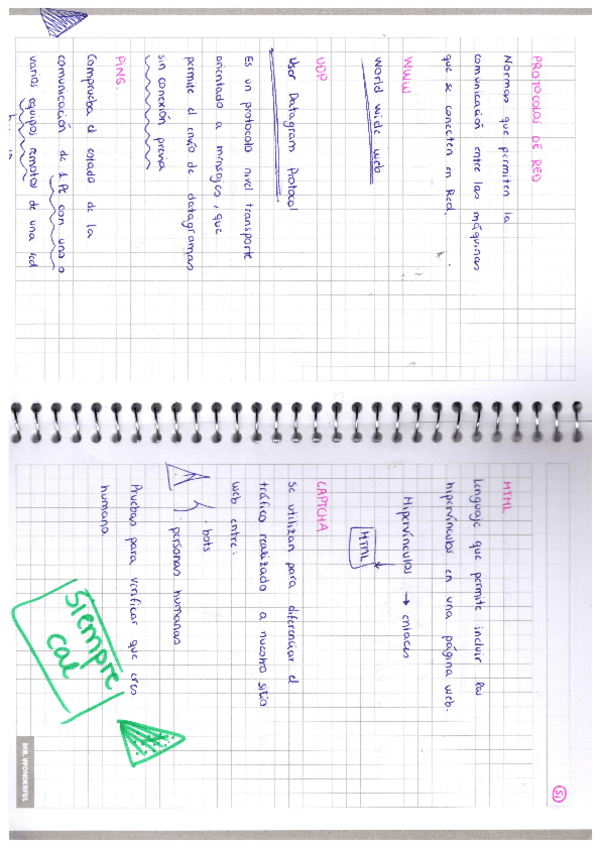 PROTOCOLOS DE RED
Normas que permiten la
comunicación entre las máquinas
que se conecten en Red.
WWW
World wide web
UDP
User Datagram Protocol
Es un protocolo nivel transporte
orientado a mensajes, que
permite el envío de datagramas
sin conexión previa
PING
Comprueba el estado de la
comunicación de 1 PC con uno o
varios equipos remotos de una red
51
HTML
Lenguaje que permite incluir los
hipervínculos en una página web.
Hipervínculos → enlaces
HTML
CAPTCHA
se utilizan para diferenciar el
tráfico realizado a nuestro sitio
web entre:
· bots
· personas humanas
Pruebas para verificar que eres
humano.
Siempre
cae
MR. WONDERFUL